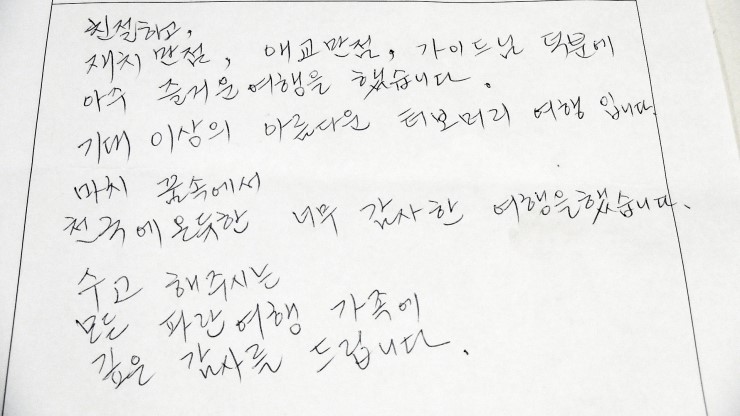 친절하고,
재치 만점, 애교만점, 가이드님 덕분에
아주 즐거운 여행을 했습니다.
기대 이상의 아름다운 터보머리 여행 입니다.
마치 꿈속에서
천국에 온듯한 너무 감사한 여행을했습니다.
수고 해주시는
모든 파란여행 가족에
깊은 감사를 드립니다.